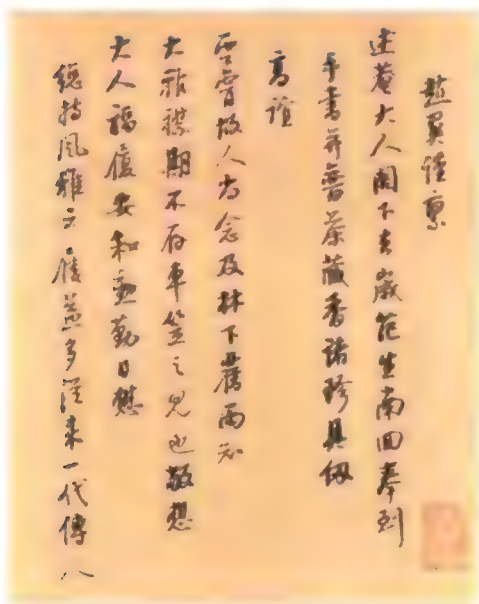 趙翼謹稟
述菴大人閣下去歲范生南回奉到
手書并普茶藏香諸珍具仞
高誼
雲霄故人尚念及林下舊雨知
大雅襟期不存車笠之見也敬想
大人福履安和勳勤日懋
總持風雅之席益多從來一代傳人